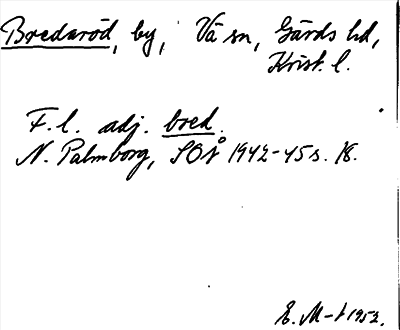 Bredaröd, by, Vä sn, Gärds hd,
Krist. l.
F.l. adj. bred.
N. Palmborg, SOÅ 1942-45 s. 18.
E. M-t 1952.